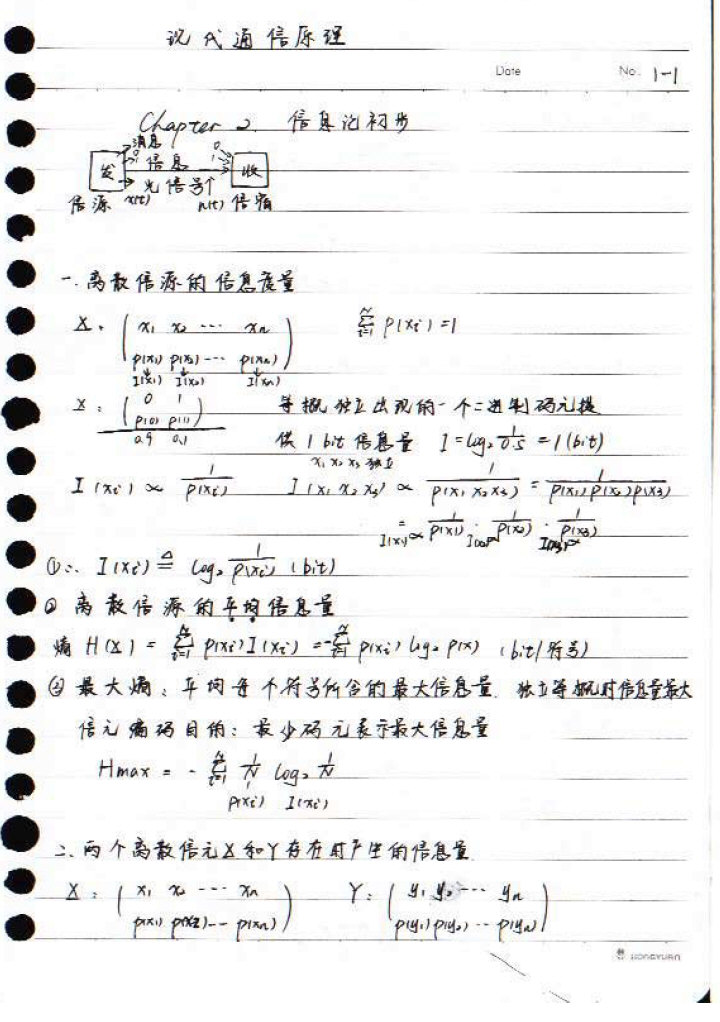 现代通信原理
Date No. 1-1
Chapter 2. 信息论初步
消息
0 1 信息 0 1
发 收
光信号↑
信源 x(t) n(t) 信宿
一. 离散信源的信息度量
X: ( x₁ x₂ ··· xₙ ) ∑ᵢ₌₁ᴺ P(xᵢ) = 1
( p(x₁) p(x₂) ··· p(xₙ) )
I(x₁) I(x₂) I(xₙ)
X: ( 0 1 ) 等概独立出现的一个二进制码元提
( p(0) p(1) )
0.9 0.1 供 1 bit 信息量 I = log₂ 1/0.5 = 1 (bit)
x₁ x₂ x₃ 独立
I(xᵢ) ∝ 1/P(xᵢ) I(x₁ x₂ x₃) ∝ 1/P(x₁ x₂ x₃) = 1/P(x₁)P(x₂)P(x₃)
= 1/P(x₁) · 1/P(x₂) · 1/P(x₃)
I(x₁)∝ I(x₂)∝ I(x₃)∝
①∴ I(xᵢ) ≜ log₂ 1/P(xᵢ) (bit)
② 离散信源的平均信息量
熵 H(X) = ∑ᵢ₌₁ᴺ P(xᵢ)I(xᵢ) = -∑ᵢ₌₁ᴺ P(xᵢ) log₂ P(x) (bit/符号)
③ 最大熵: 平均每个符号所含的最大信息量. 独立等概时信息量最大
信元编码目的: 最少码元表示最大信息量
Hmax = - ∑ᵢ₌₁ᴺ 1/N log₂ 1/N
P(xᵢ) I(xᵢ)
二. 两个离散信元X和Y存在时产生的信息量.
X: ( x₁ x₂ ··· xₙ ) Y: ( y₁ y₂ ··· yₙ )
( p(x₁) p(x₂) ··· p(xₙ) ) ( p(y₁) p(y₂) ··· p(yₙ) )